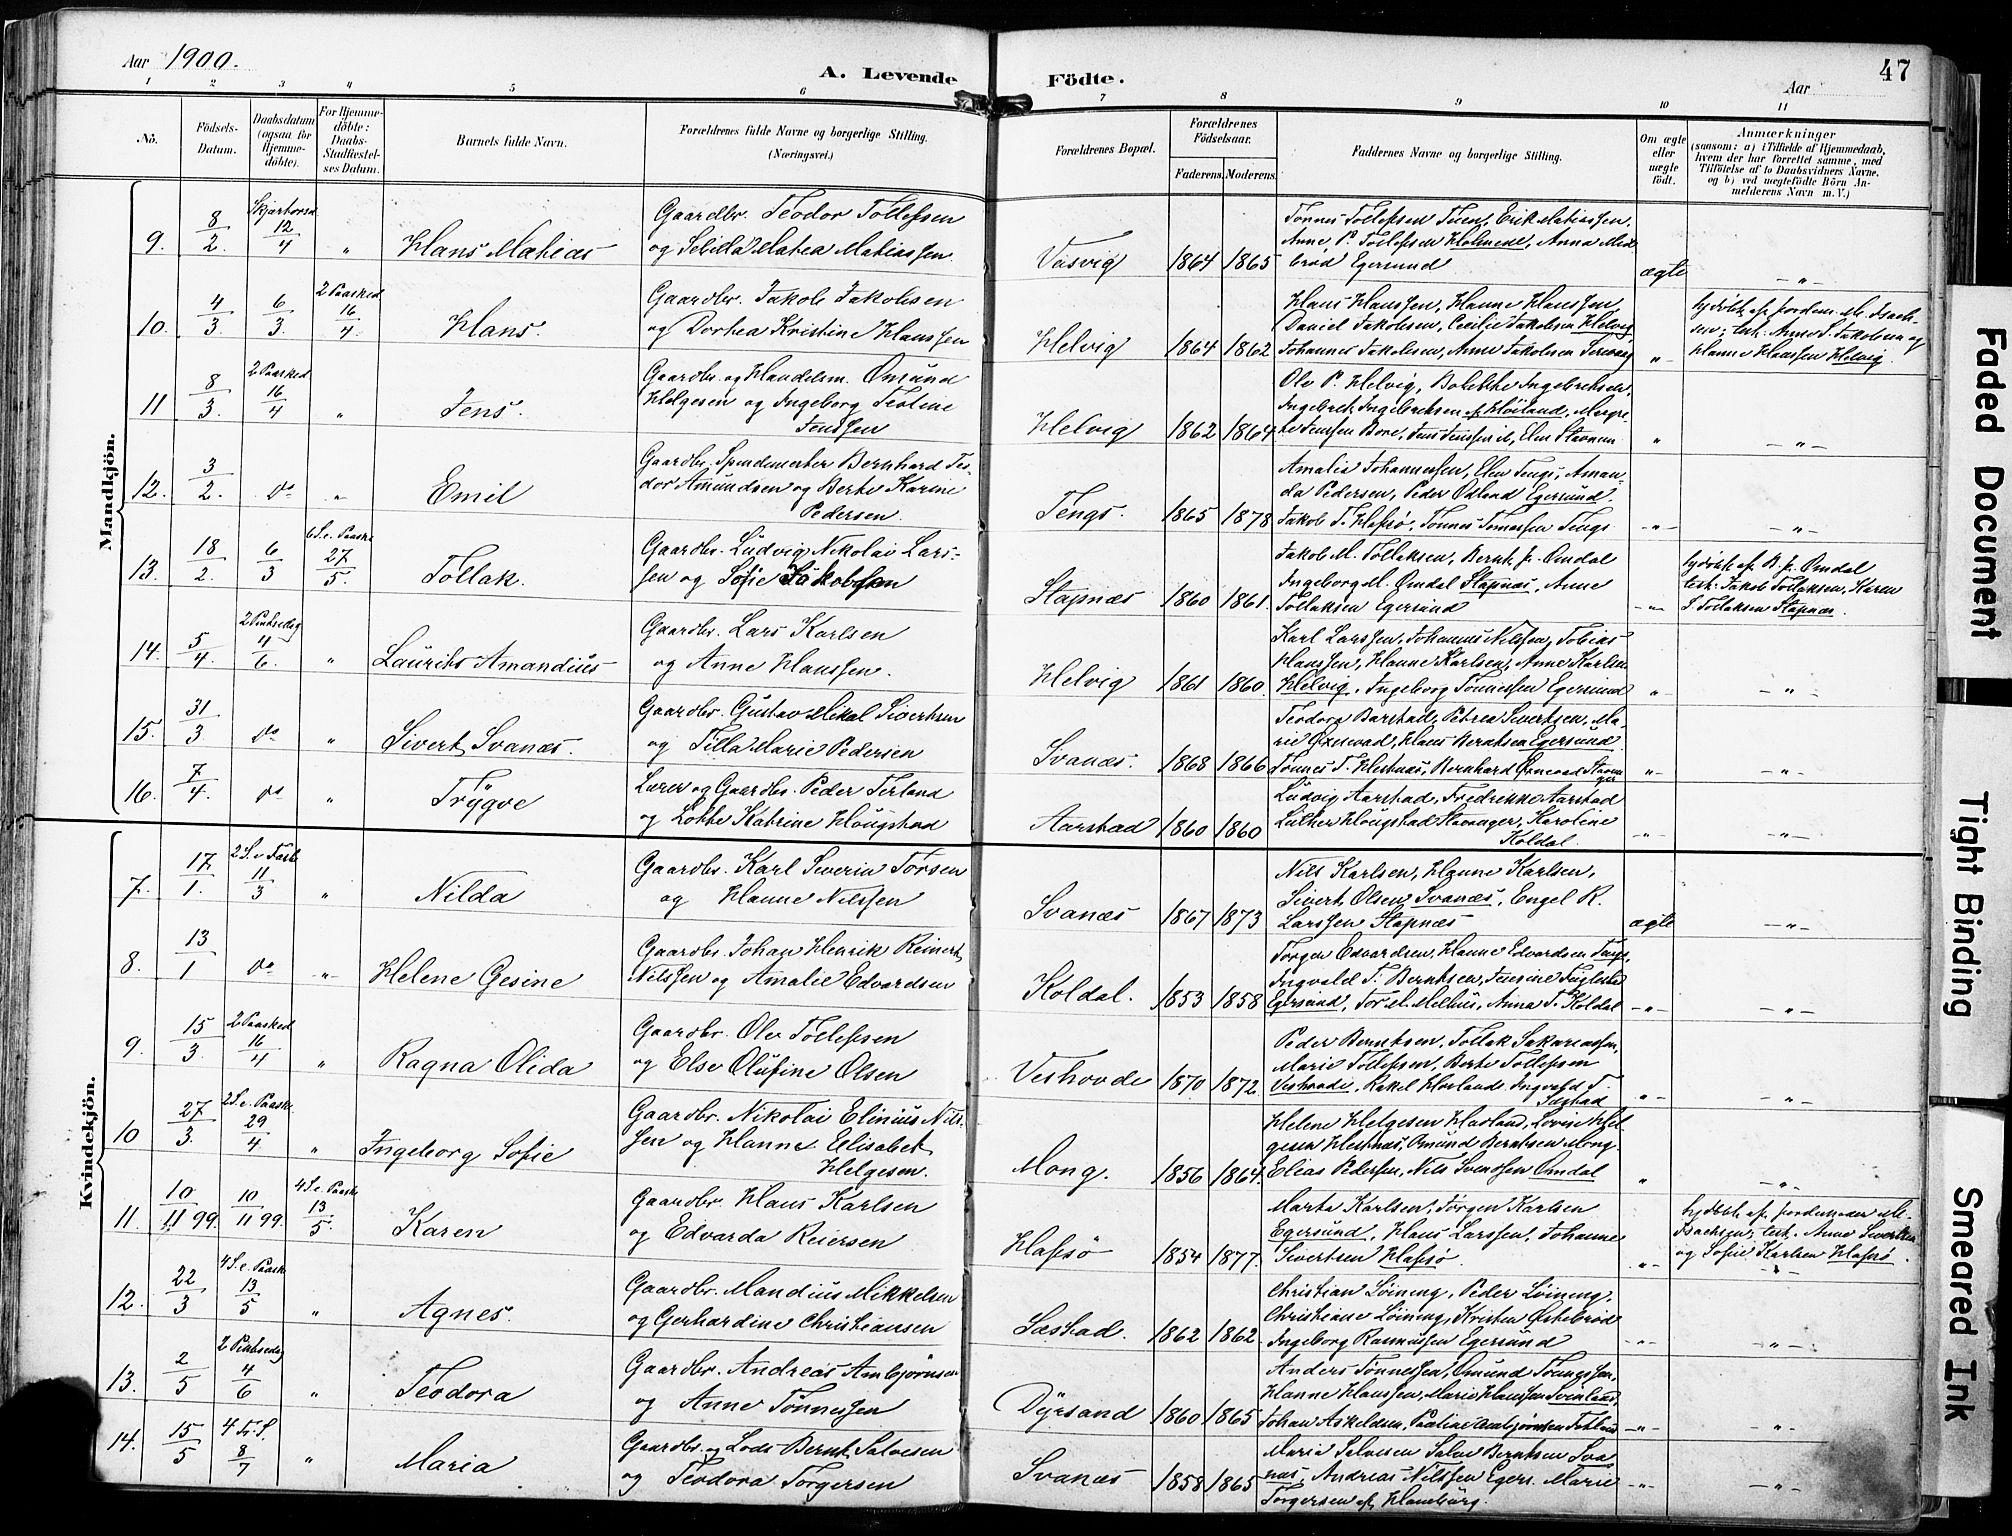 Aar 1900.
A. Levende Födte.
Aar
47
1 2 3 4 5 6 7 8 9 10 11
No.
Födsels-Datum.
Daabsdatum (ogsaa for Hjemmedöbte).
For Hjemmedöbte: Daabs-Stadfæstelses Datum.
Barnets fulde Navn.
Forældrenes fulde Navne og borgerlige Stilling. (Næringsvei.)
Forældrenes Bopæl.
Forældrenes Födselsaar.
Faderens. Moderens.
Faddernes Navne og borgerlige Stilling.
Om ægte eller uægte födt.
Anmærkninger
(saasom: a) i Tilfælde af Hjemmedaab, hvem der har forrettet samme, med Tilföielse af to Daabsvidners Navne, og b) ved uægtefödte Börn Anmelderens Navn m. V.)
Mandkjön.
9. 8/2. Skjærtorsd 12/4 " Hans Matias
Gaardbr. Teodor Tollefsen
og Selilla Matea Matiassen.
Vasvig 1864 1865
Tönnes Tollefsen Tuen, Erik Matiassen,
Anne P. Tollefsen Holmene, Anna Mid
brød Egersund
ægte -"-
10. 4/3 6/3. 2 Paasked 16/4. Hans.
Gaardbr. Jakob Jakobsen
og Dorthea Kristine Hanssen
Helvig 1864 1862
Hans Hanssen, Hanne Hanssen,
Daniel Jakobsen, Cecilie Jakobsen Helvig,
Johannes Jakobsen, Anne Jakobsen
"
hjdöbt af fordem. M. Isach-
sen; test. Anne S. Jakobsen og
Hanne Hanssen Helvig.
11 8/3. 2 Paasked 16/4 " Jens.
Gaardbr. og Handelsm. Omund
Helgesen og Ingeborg Testine
Jenssen
Helvig 1862 1864
Ole P. Helvig, Bolette Ingebretsen,
Ingebret Ingebretsen Höiland, Margre-
te Jenssen Bore, Jens Jenssen ib, Elen Stavnum
" -"-
12. 3/2. do " Emil
Gaardbr. Spindemester Bernhard Teo-
dor Amundsen og Berte Karine
Pedersen.
Tengs. 1865 1878
Amalie Johannessen, Elen Tengs, Aman-
da Pedersen, Peder Ødland Egersund.
Jakob T. Hafsø, Tönnes Tomassen Tengs
-"- "
13. 18/2. 6/3 6 S. e. Paaske 27/5. Tollak.
Gaardbr. Ludvig Nikolai Lars-
sen og Sofie Jakobsen
Stapnæs 1860 1861.
Jakob M. Tollaksen, Bernt Omdal
Ingeborg M. Omdal Stapnæs, Anne
Tollaksen Egersund
-"-
hjdöbt af B. Omdal
test: Jakob Tollaksen, Karen
S. Tollaksen Stapnæs.
14. 5/4. 2 Pintsedag 4/6. " Laurits Amandius
Gaardbr. Lars Karlsen
og Anne Hanssen.
Helvig 1861 1860.
Karl Larssen, Johannes Nilssen, Tobias
Hanssen, Hanne Karlsen, Anne Karlsen
Helvig, Ingeborg Tönnessen Egersund
" "
15. 31/3 do " Sivert Svanæs.
Gaardbr. Gustav Mikal Sivertsen
og Tilla Marie Pedersen
Svanæs. 1868 1866
Teodora Barstad, Petrea Sivertsen, Ma-
rie, Hans Berntsen Egersund
Tönnes T. Hestnæs, Bernhard Stavanger
" -"-
16. 7/4. do " Trygve
Lærer og Gaardbr. Peder Terland
og Lotte Katrine Hougstad
Aarstad 1860 1860
Ludvig Aarstad, Fredrikke Aarstad
Luther Hougstad Stavanger, Karoline
Koldal.
-"- -"-
Kvindekjön.
7. 17/1. 2 S. i Fast. 11/3 " Nilda
Gaardbr. Karl Severin Torsen
og Hanne Nilssen
Svanæs 1867 1873
Nils Karlsen, Hanne Karlsen,
Sivert Olsen Svanæs, Engel R.
Larssen Stapnæs
ægte -"-
8. 13/1 do -"- Helene Gesine
Gaardbr. Johan Henrik Reinert
Nilssen og Amalie Edvardsen
Koldal. 1853 1858
Torger Edvardsen, Hanne Edvardsen Tengs,
Ingvald T. Berntsen,
Egersund, Tor M. Melhus, Anna T. Koldal
-"- -"-
9. 15/3. 2 Paasked 16/4 " Ragna Olida
Gaardbr. Ole Tollefsen
og Else Olufine Olsen
Veshovde 1870 1872.
Peder Berntsen, Tollak Sakariassen,
Marie Tollefsen, Berte Tollefsen
Veshovde, Rakel Hovland, Ingvald T.
Sæstad
-"- -"-
10 27/3. 2 S. e. Paaske 29/4 " Ingeborg Sofie
Gaardbr. Nikolai Elinius Nils-
sen og Hanne Elisabet
Helgesen.
Mong. 1856 1864.
Helene Helgesen Havland, Lovise Hel
gesen Hestnæs, Omund Berntsen Mong
Elias Pedersen, Nils Svendsen Omdal
" -"-
11. 10/11 99. 10/11 99. 4 S. e. Paaske 13/5. Karen
Gaardbr. Hans Karlsen
og Edvarda Reiersen
Hafsø 1854 1877.
Marta Karlsen, Jørgen Karlsen
Egersund, Hans Larssen, Johanne
Sivertsen Hafsø.
"
hjdöbt af fordemoder M.
Isachsen; test. Anne Sivertsen
og Sofie Karlsen Hafsø.
12. 22/3 4 S. e. Paaske 13/5 " Agnes.
Gaardbr. Mandius Mikkelsen
og Gerhardine Christiansen
Sæstad. 1862 1862
Christian Löining, Peder Löining,
Christiane Löining, Kristen Østebrød
Ingeborg Rasmussen Egersund
-"- -"-
13. 2/5 2 Pintsedag 4/6 " Teodora
Gaardbr. Andreas Ambjørnsen
og Anne Tönnessen
Dyrsand 1860 1865
Anders Tönnessen, Omund
Hanne Hanssen, Marie Hanssen Svinland,
Johan Askeldsen, Pauline Ambjørnsen
-"- "
14. 15/5 4 Tr. S. 8/7 " Maria
Gaardbr. og Lods Bernt Salvesen
og Teodora Torgersen
Svanæs 1858 1865
Marie Salvesen Salve Berntsen Sva
næs, Andreas Nilssen Egers. Marie
Torgersen af Hamburg.
-"- -"-
Faded Document
Tight Binding
Smeared Ink